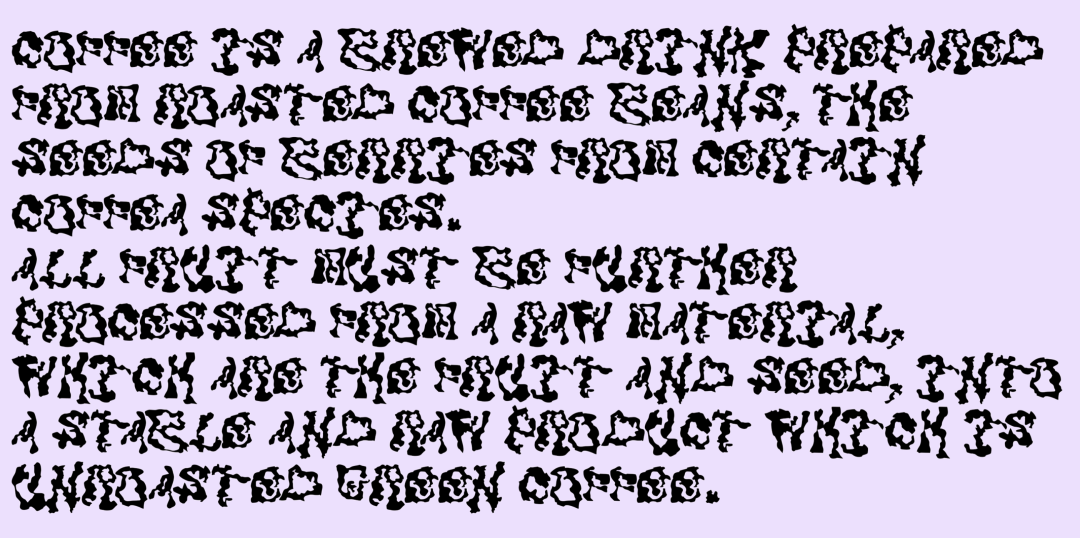 COFFEE IS A BREWED DRINK PREPARED
FROM ROASTED COFFEE BEANS, THE
SEEDS OF BERRIES FROM CERTAIN
COFFEA SPECIES.
ALL FRUIT MUST BE FURTHER
PROCESSED FROM A RAW MATERIAL,
WHICH ARE THE FRUIT AND SEED, INTO
A STABLE AND RAW PRODUCT WHICH IS
UNROASTED GREEN COFFEE.